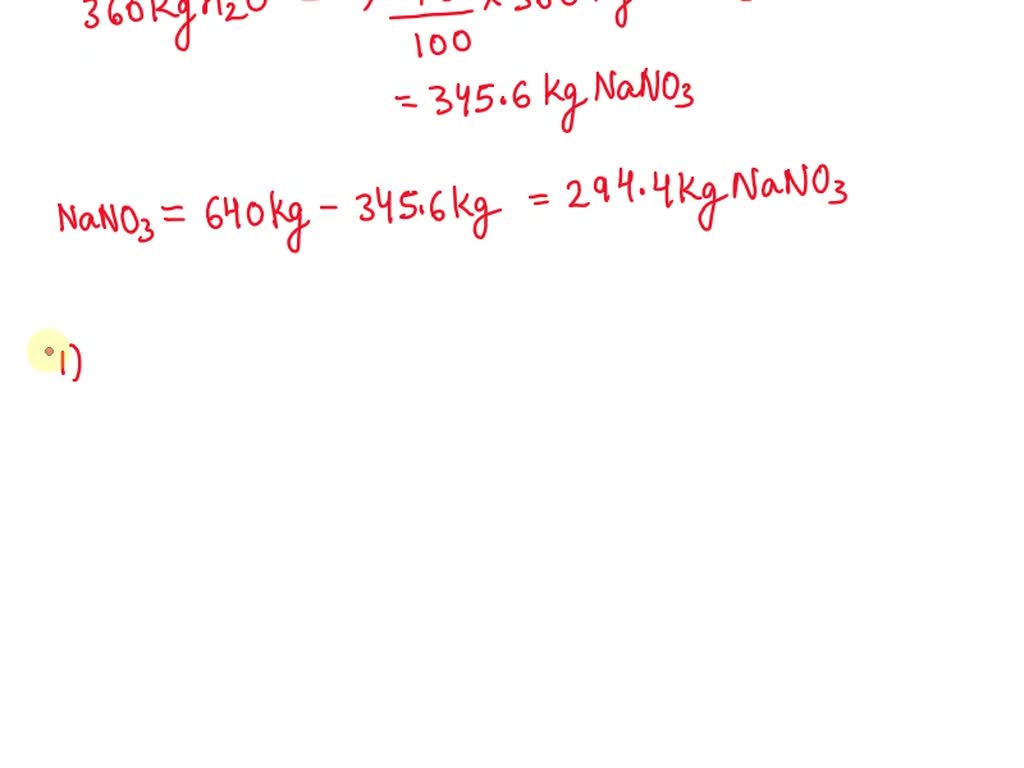 360kg H2O
100
= 345.6 kg NaNO3
NaNO3 = 640kg - 345.6kg = 294.4kg NaNO3
1)